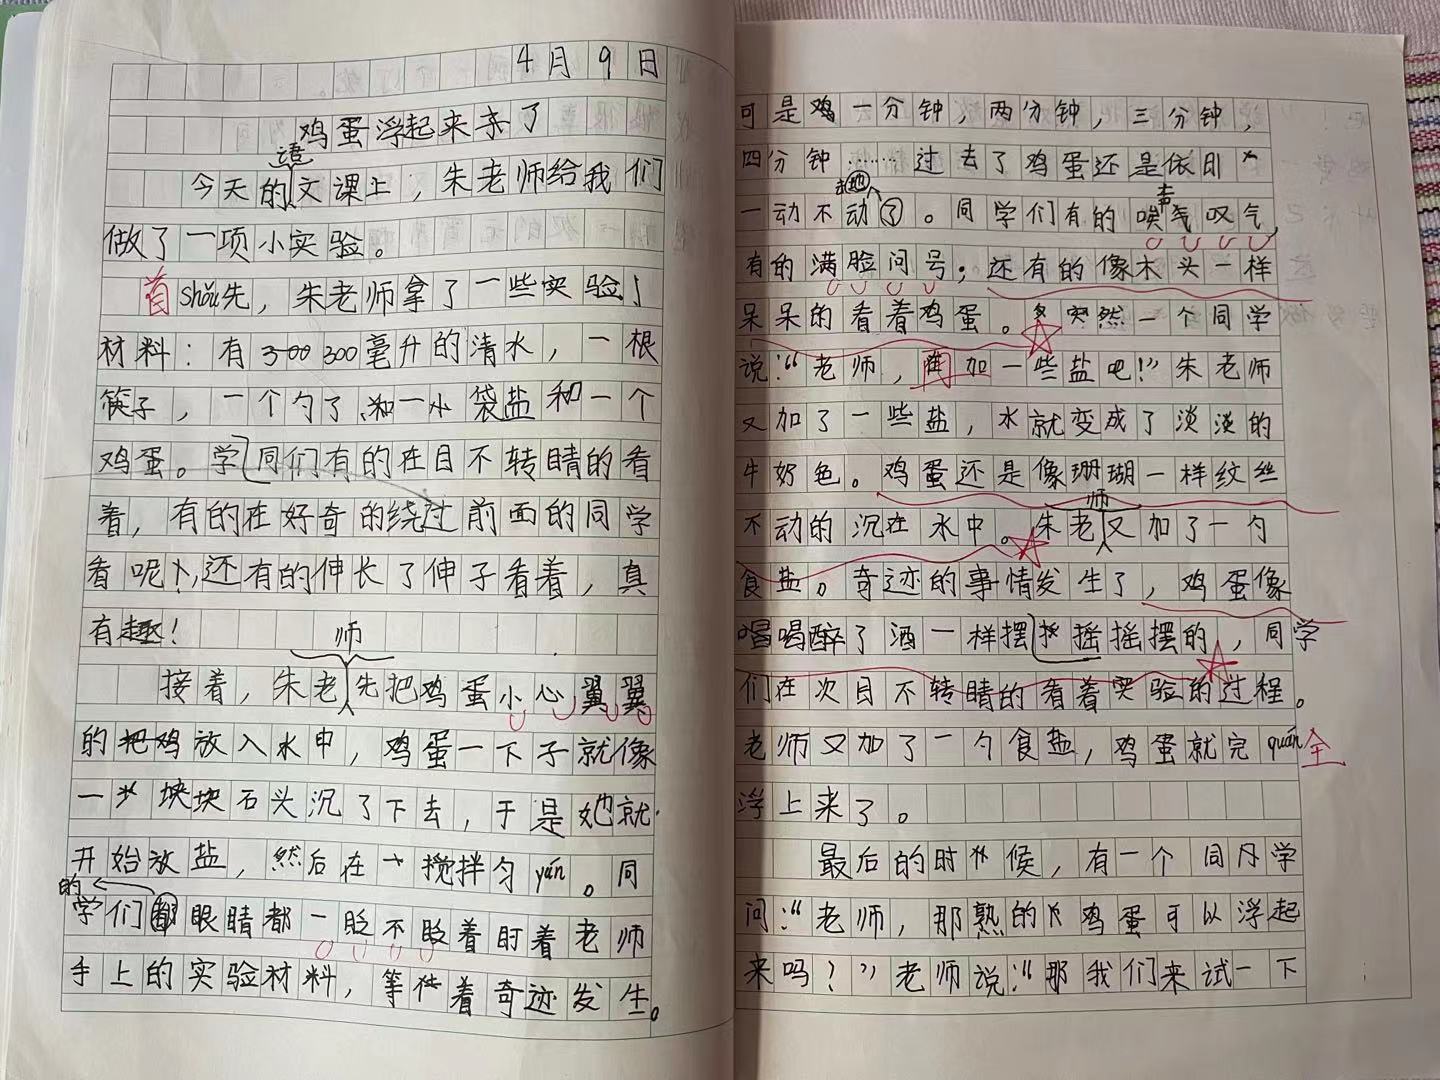 4月9日
鸡蛋浮起来了
今天的语文课上，朱老师给我们
做了一项小实验。
首shǒu先，朱老师拿了一些实验
材料：有300毫升的清水，一根
筷子，一个勺了，和一小袋盐和一个
鸡蛋。学同们有的在目不转睛的看
着，有的在好奇的绕过前面的同学
看呢，还有的伸长了伸子看着，真
有趣！
接着，朱老师先把鸡蛋小心翼翼
的把鸡放入水中，鸡蛋一下子就像
一块块石头沉了下去，于是她就
开始放盐，然后在搅拌匀yún。同
学们的眼睛都一眨不眨着盯着老师
手上的实验材料，等着奇迹发生。
可是鸡一分钟，两分钟，三分钟，
四分钟……过去了鸡蛋还是依旧
一动不动地。同学们有的唉声叹气，
有的满脸问号；还有的像木头一样
呆呆的看着鸡蛋。突然一个同学
说：“老师，再加一些盐吧！”朱老师
又加了一些盐，水就变成了淡淡的
牛奶色。鸡蛋还是像珊瑚一样纹丝
不动的沉在水中。朱老师又加了一勺
食盐。奇迹的事情发生了，鸡蛋像
喝喝醉了酒一样摆摇摇摆的，同学
们在次目不转睛的看着实验的过程。
老师又加了一勺食盐，鸡蛋就完quán全
浮上来了。
最后的时候，有一个同学
问：“老师，那熟的鸡蛋可以浮起
来吗？”老师说：“那我们来试一下